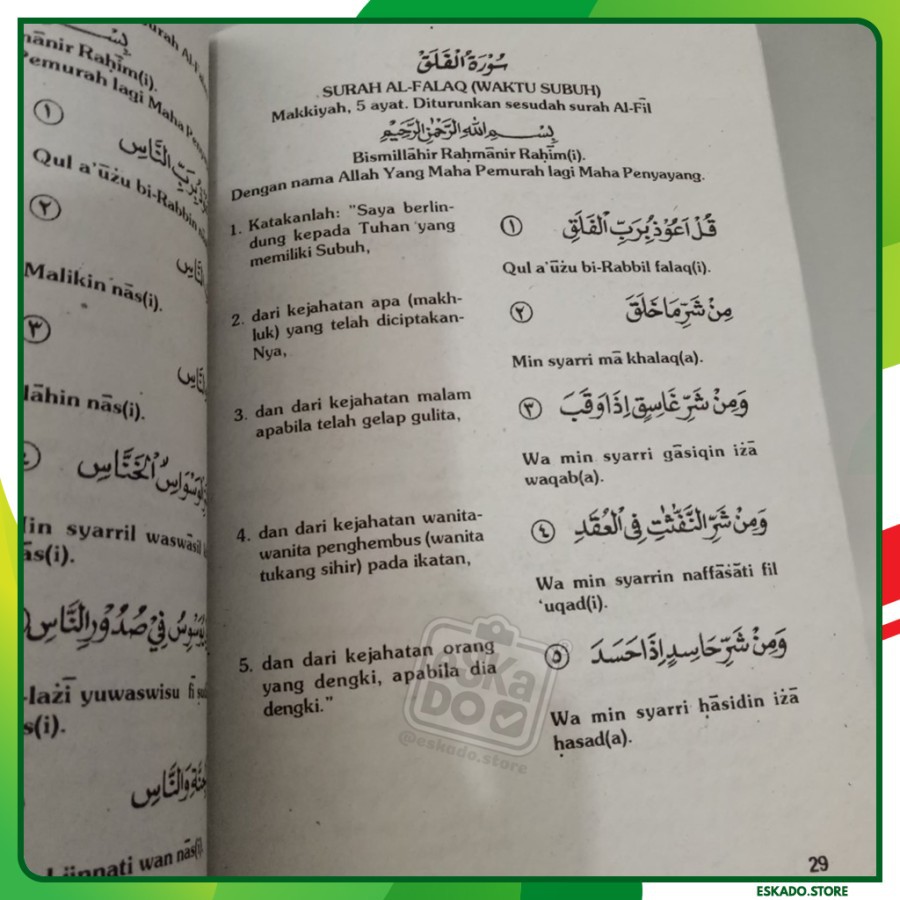 سُوْرَةُ الْفَلَقِ
SURAH AL-FALAQ (WAKTU SUBUH)
Makkiyah, 5 ayat. Diturunkan sesudah surah Al-Fīl
بِسْمِ اللهِ الرَّحْمٰنِ الرَّحِيْمِ
Bismillāhir Raḥmānir Raḥīm(i).
Dengan nama Allah Yang Maha Pemurah lagi Maha Penyayang.
1. Katakanlah: "Saya berlin-
dung kepada Tuhan yang
memiliki Subuh,
١ قُلْ اَعُوْذُ بِرَبِّ الْفَلَقِ
Qul a'ūżu bi-Rabbil falaq(i).
2. dari kejahatan apa (makh-
luk) yang telah diciptakan-
Nya,
٢ مِنْ شَرِّ مَا خَلَقَ
Min syarri mā khalaq(a).
3. dan dari kejahatan malam
apabila telah gelap gulita,
٣ وَمِنْ شَرِّ غَاسِقٍ اِذَا وَقَبَ
Wa min syarri gāsiqin iżā
waqab(a).
4. dan dari kejahatan wanita-
wanita penghembus (wanita
tukang sihir) pada ikatan,
٤ وَمِنْ شَرِّ النَّفّٰثٰتِ فِى الْعُقَدِ
Wa min syarrin naffāṡāti fil
'uqad(i).
5. dan dari kejahatan orang
yang dengki, apabila dia
dengki."
٥ وَمِنْ شَرِّ حَاسِدٍ اِذَا حَسَدَ
Wa min syarri ḥāsidin iżā
ḥasad(a).
29
Raḥīm(i).
Pemurah lagi Maha
١
بِرَبِّ النَّاسِ
Qul a'ūżu bi-Rabbin
٢
النَّاسِ
Malikin nās(i).
٣
النَّاسِ
nās(i).
الْوَسْوَاسِ الْخَنَّاسِ
syarril waswāsil
يُوَسْوِسُ فِيْ صُدُوْرِ النَّاسِ
yuwaswisu fī
وَالنَّاسِ
wan nās(i).
esKa
DO
@eskado.store
ESKADO.STORE